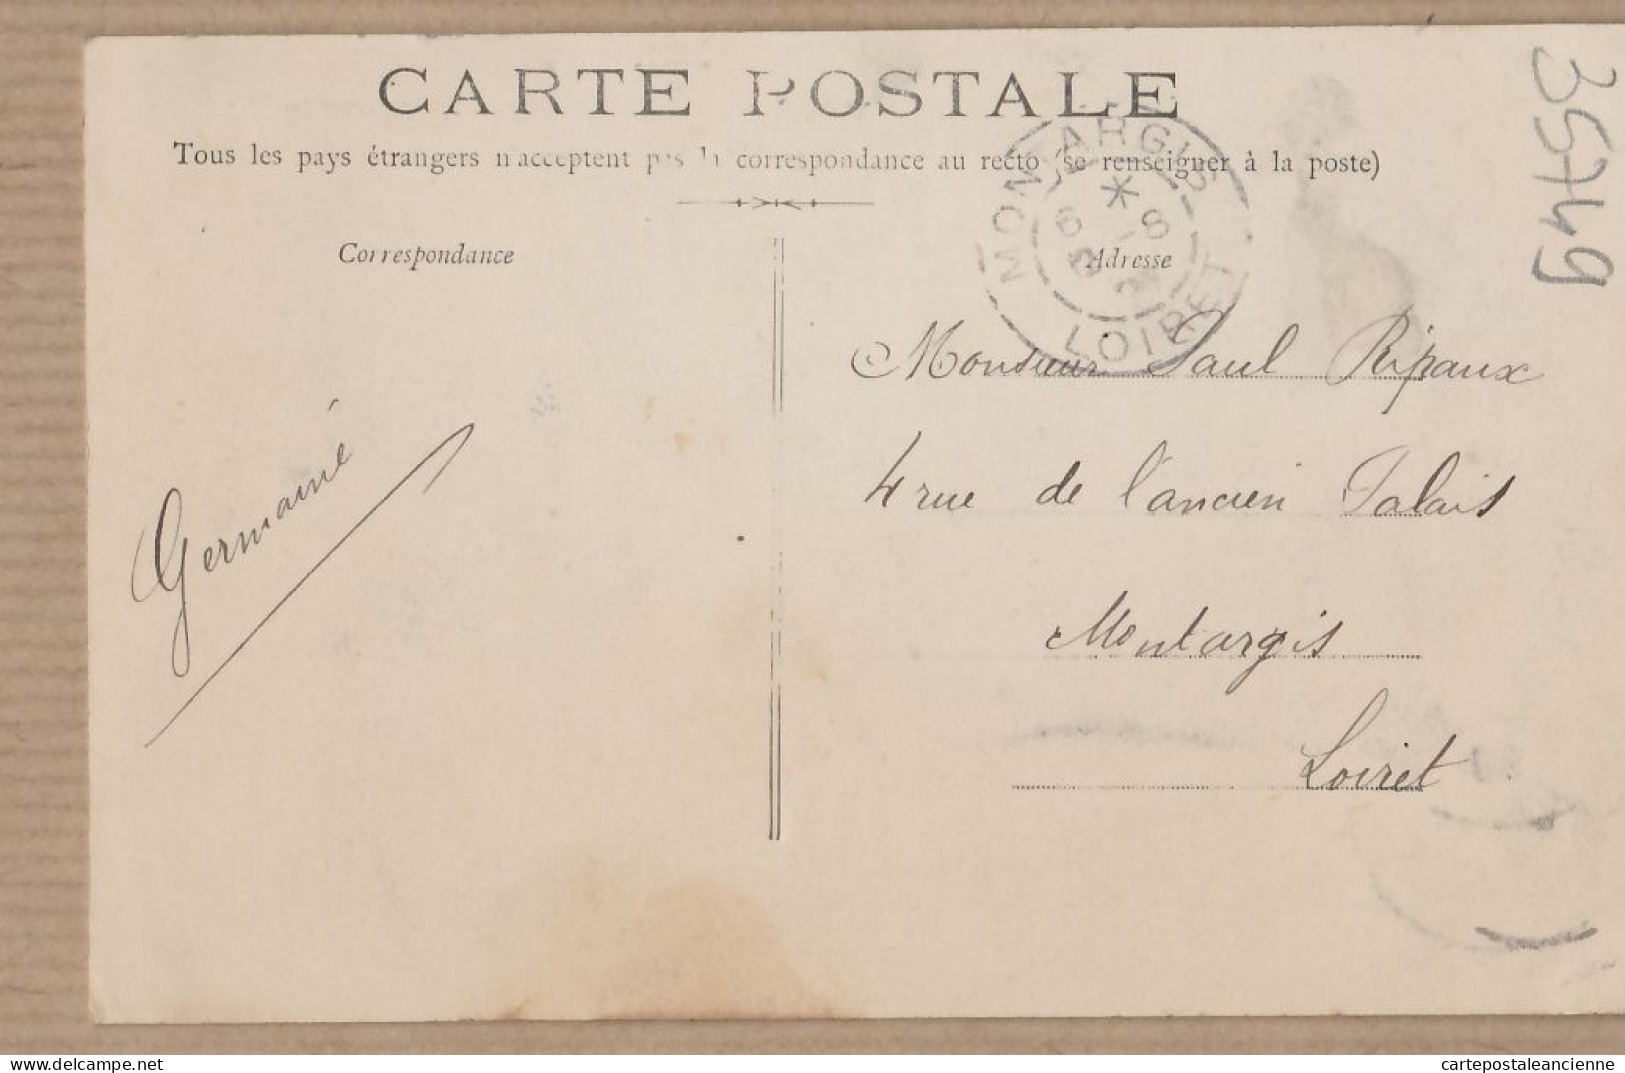 CARTE POSTALE
Tous les pays étrangers n'acceptent pas la correspondance au recto (se renseigner à la poste)
Correspondance
Adresse
MONTARGIS
LOIRET
35749
Monsieur Paul Ripaux
4 rue de l'ancien Palais
Montargis
Loiret
Germaine
delcampe.net
cartepostaleancienne